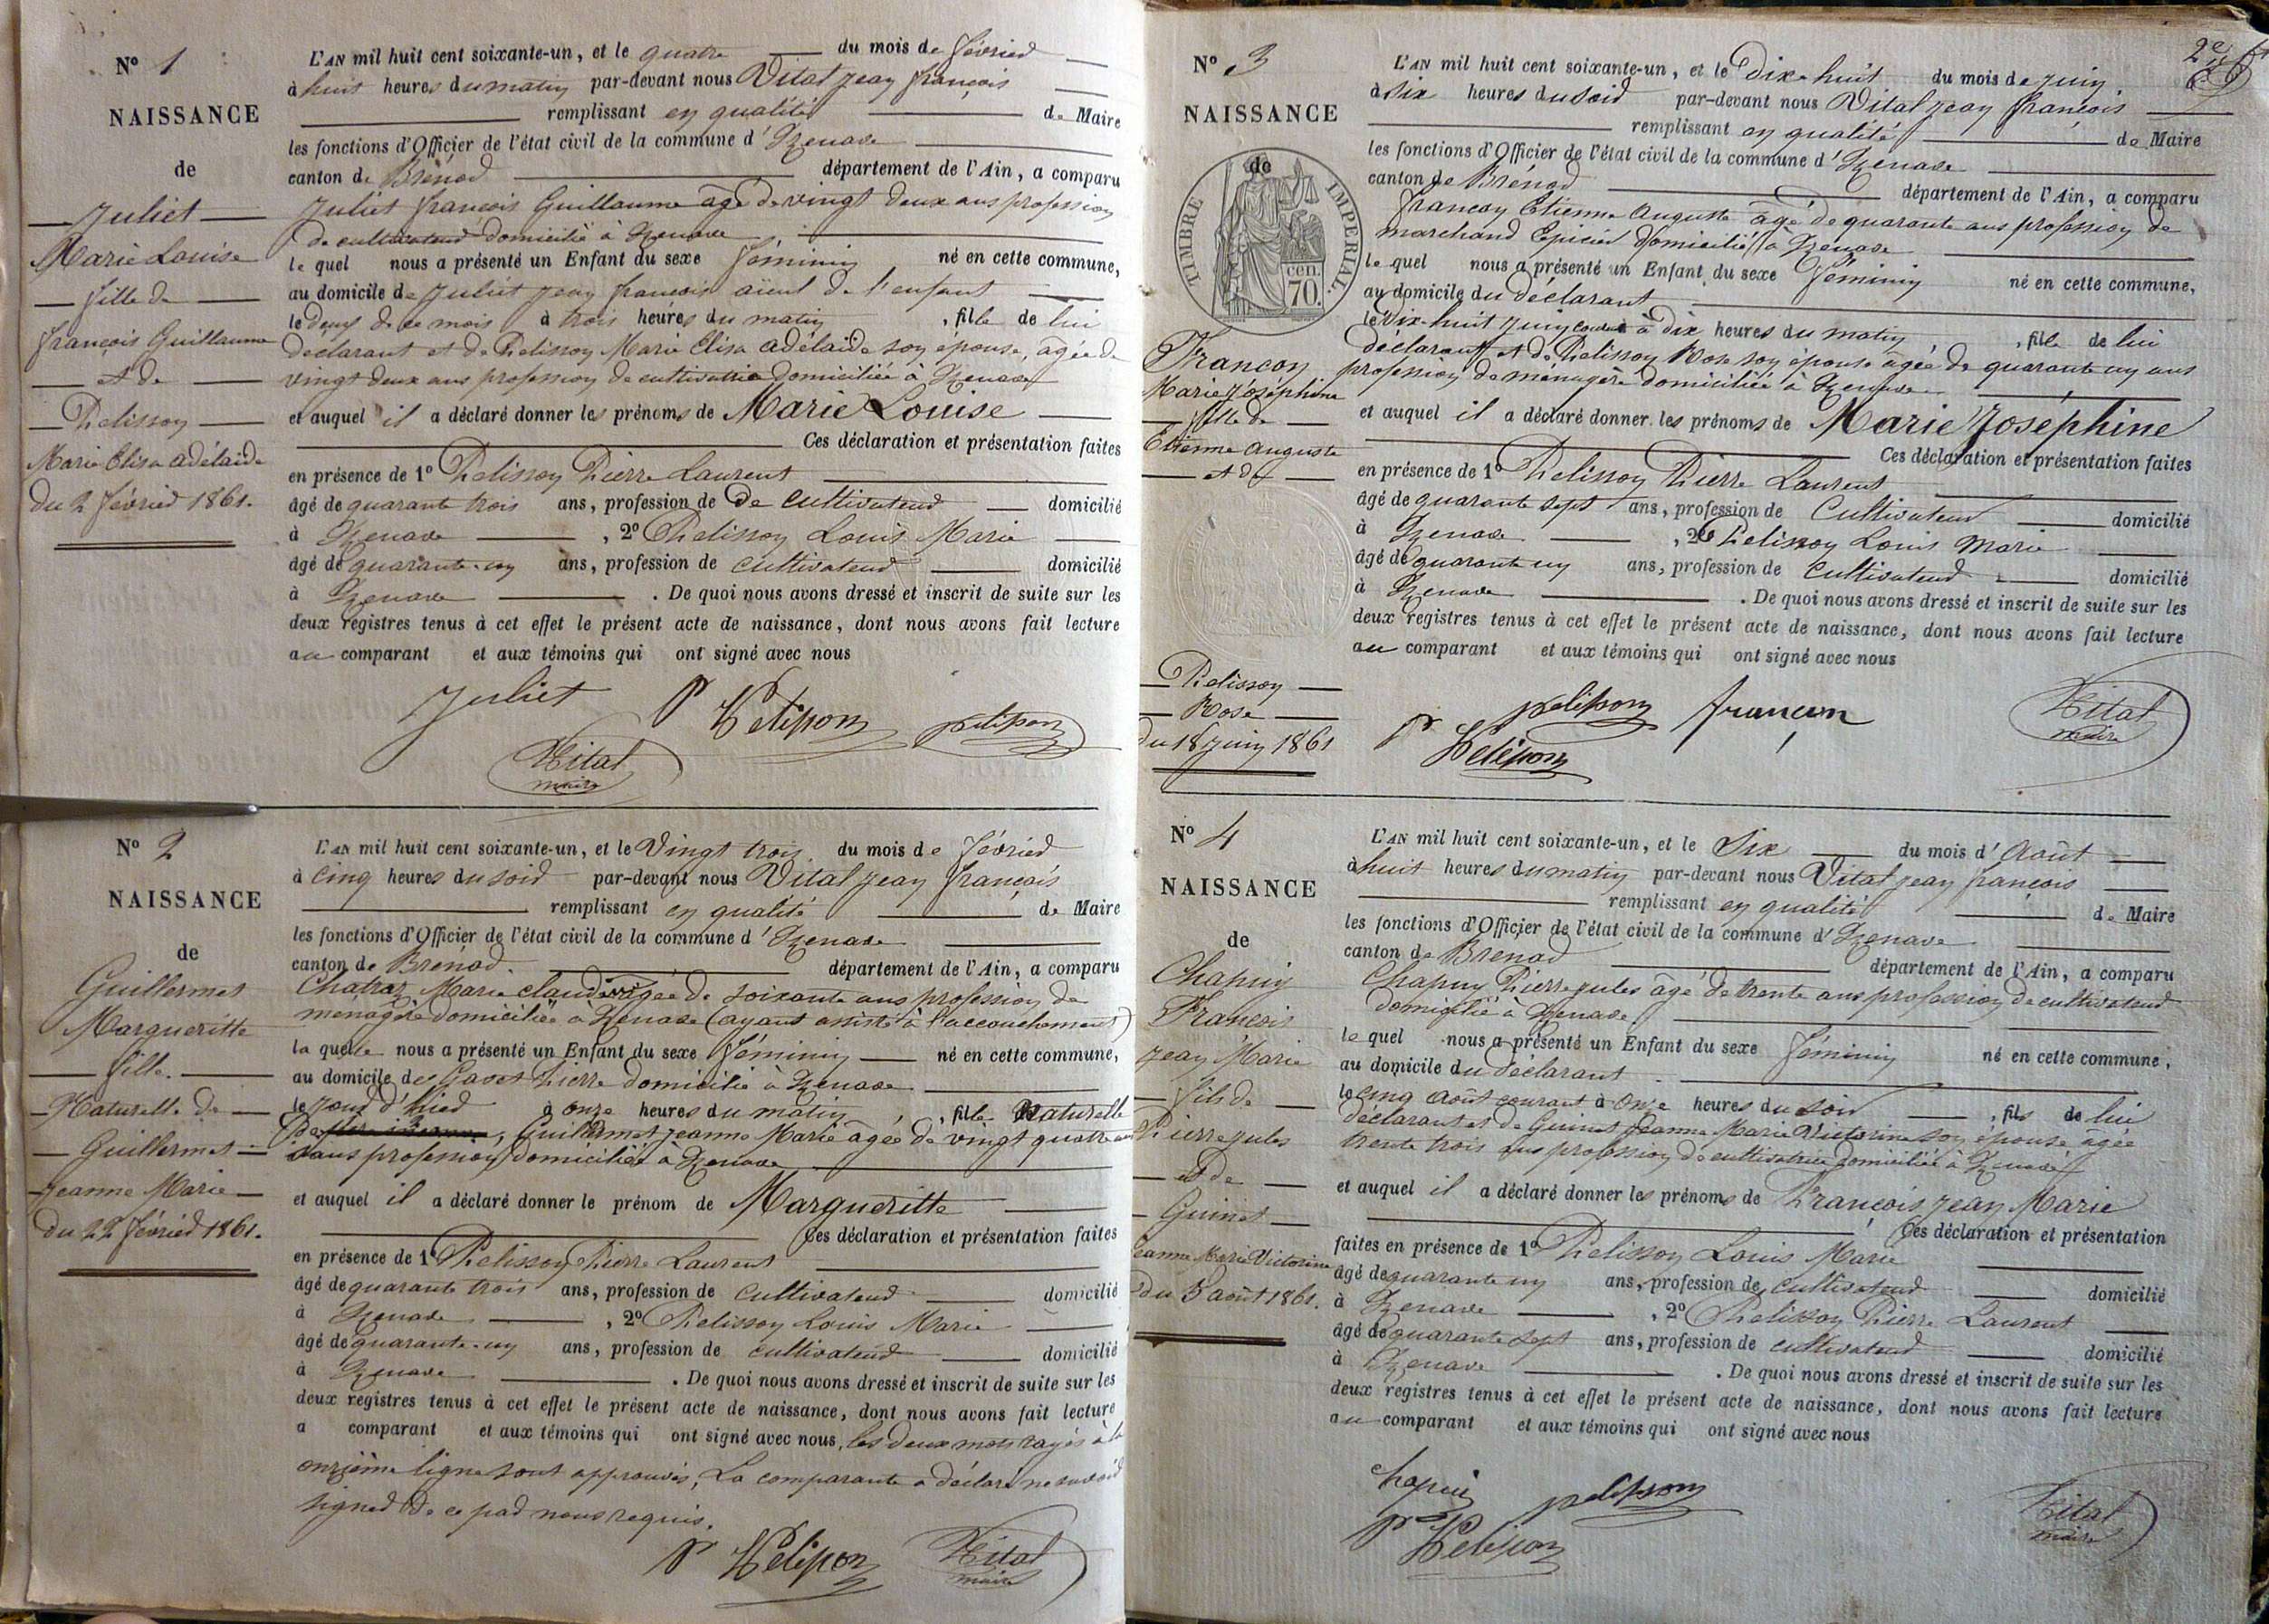 N° 1
NAISSANCE
de
Juliet
Marie Louise
fille de
françois Guillaume
et de
Pelisson
Marie Elisa adélaide
du 2 février 1861.
L'AN mil huit cent soixante-un, et le quatre du mois de février
à huit heures du matin par-devant nous Vital jean françois
remplissant en qualité de Maire
les fonctions d'Officier de l'état civil de la commune d'Izenave
canton de Brénod département de l'Ain, a comparu
Juliet françois Guillaume âgé de vingt deux ans profession
de cultivateur domicilié à Izenave
le quel nous a présenté un Enfant du sexe féminin né en cette commune,
au domicile de Juliet jean françois aïeul de l'enfant
le deux de ce mois à trois heures du matin, fille de lui
déclarant et de Pelisson Marie Elisa adélaide son épouse, âgée de
vingt deux ans profession de cultivatrice domiciliée à Izenave
et auquel il a déclaré donner les prénoms de Marie Louise
Ces déclaration et présentation faites
en présence de 1° Pelisson Pierre Laurent
âgé de quarante trois ans, profession de de cultivateur domicilié
à Izenave, 2° Pelisson Louis Marie
âgé de quarante-un ans, profession de cultivateur domicilié
à Izenave. De quoi nous avons dressé et inscrit de suite sur les
deux registres tenus à cet effet le présent acte de naissance, dont nous avons fait lecture
au comparant et aux témoins qui ont signé avec nous
Juliet P Pelisson pelisson
Vital
maire
N° 2
NAISSANCE
de
Guillermet
Margueritte
fille
Naturelle de
Guillermet
Jeanne Marie
du 22 février 1861.
L'AN mil huit cent soixante-un, et le Vingt trois du mois de février
à cinq heures du soir par-devant nous Vital jean françois
remplissant en qualité de Maire
les fonctions d'Officier de l'état civil de la commune d'Izenave
canton de Brénod. département de l'Ain, a comparu
Marie âgée de soixante ans profession de
ménagère domiciliée à Izenave (ayant assisté à l'accouchement)
la quelle nous a présenté un Enfant du sexe féminin né en cette commune,
au domicile de Pierre domicilié à Izenave
le jour d'hier à onze heures du matin, fille Naturelle
De Guillermet jeanne Marie âgée de vingt quatre ans
sans profession domiciliée à Izenave
et auquel il a déclaré donner le prénom de Margueritte
Ces déclaration et présentation faites
en présence de 1° Pelisson Pierre Laurent
âgé de quarante trois ans, profession de cultivateur domicilié
à Izenave, 2° Pelisson Louis Marie
âgé de quarante-un ans, profession de cultivateur domicilié
à Izenave. De quoi nous avons dressé et inscrit de suite sur les
deux registres tenus à cet effet le présent acte de naissance, dont nous avons fait lecture
a comparant et aux témoins qui ont signé avec nous, les deux mots rayés à la
onzième ligne sont approuvés, La comparante a déclaré ne savoir
signer de ce par nous requis.
P Pelisson Vital
maire
2e
N° 3
NAISSANCE
de
TIMBRE IMPERIAL.
70 cen.
Françon
Marie Joséphine
fille de
Etienne auguste
et de
Pelisson
Rose
du 18 juin 1861
L'AN mil huit cent soixante-un, et le Dix-huit du mois de juin
à six heures du soir par-devant nous Vital jean françois
remplissant en qualité de Maire
les fonctions d'Officier de l'état civil de la commune d'Izenave
canton de Brénod département de l'Ain, a comparu
françon Etienne auguste âgé de quarante ans profession de
marchand Epicier domicilié à Izenave
le quel nous a présenté un Enfant du sexe féminin né en cette commune,
au domicile du déclarant
le Dix-huit juin courant à dix heures du matin, fille de lui
déclarant et de Pelisson Rose son épouse âgée de quarante un ans
profession de ménagère domiciliée à Izenave
et auquel il a déclaré donner les prénoms de Marie Joséphine
Ces déclaration et présentation faites
en présence de 1° Pelisson Pierre Laurent
âgé de quarante sept ans, profession de Cultivateur domicilié
à Izenave, 2° Pelisson Louis Marie
âgé de quarante un ans, profession de Cultivateur domicilié
à Izenave. De quoi nous avons dressé et inscrit de suite sur les
deux registres tenus à cet effet le présent acte de naissance, dont nous avons fait lecture
au comparant et aux témoins qui ont signé avec nous
pelisson françon Vital
maire
P Pelisson
N° 4
NAISSANCE
de
Chapuy
François
jean Marie
fils de
Pierre jules
et de
Guinet
jeanne Marie Victorine
du 5 août 1861.
L'AN mil huit cent soixante-un, et le Six du mois d'Août
à huit heures du matin par-devant nous Vital jean françois
remplissant en qualité de Maire
les fonctions d'Officier de l'état civil de la commune d'Izenave
canton de Brénod département de l'Ain, a comparu
Chapuy Pierre jules âgé de trente ans profession de cultivateur
domicilié à Izenave
le quel nous a présenté un Enfant du sexe féminin né en cette commune,
au domicile du déclarant
le cinq Août courant à onze heures du soir, fils de lui
déclarant et de Guinet jeanne Marie Victorine son épouse âgée
trente trois ans profession de cultivatrice domiciliée à Izenave
et auquel il a déclaré donner les prénoms de François jean Marie
Ces déclaration et présentation
faites en présence de 1° Pelisson Louis Marie
âgé de quarante un ans, profession de cultivateur domicilié
à Izenave, 2° Pelisson Pierre Laurent
âgé de quarante sept ans, profession de cultivateur domicilié
à Izenave. De quoi nous avons dressé et inscrit de suite sur les
deux registres tenus à cet effet le présent acte de naissance, dont nous avons fait lecture
au comparant et aux témoins qui ont signé avec nous
pelisson Vital
maire
P Pelisson